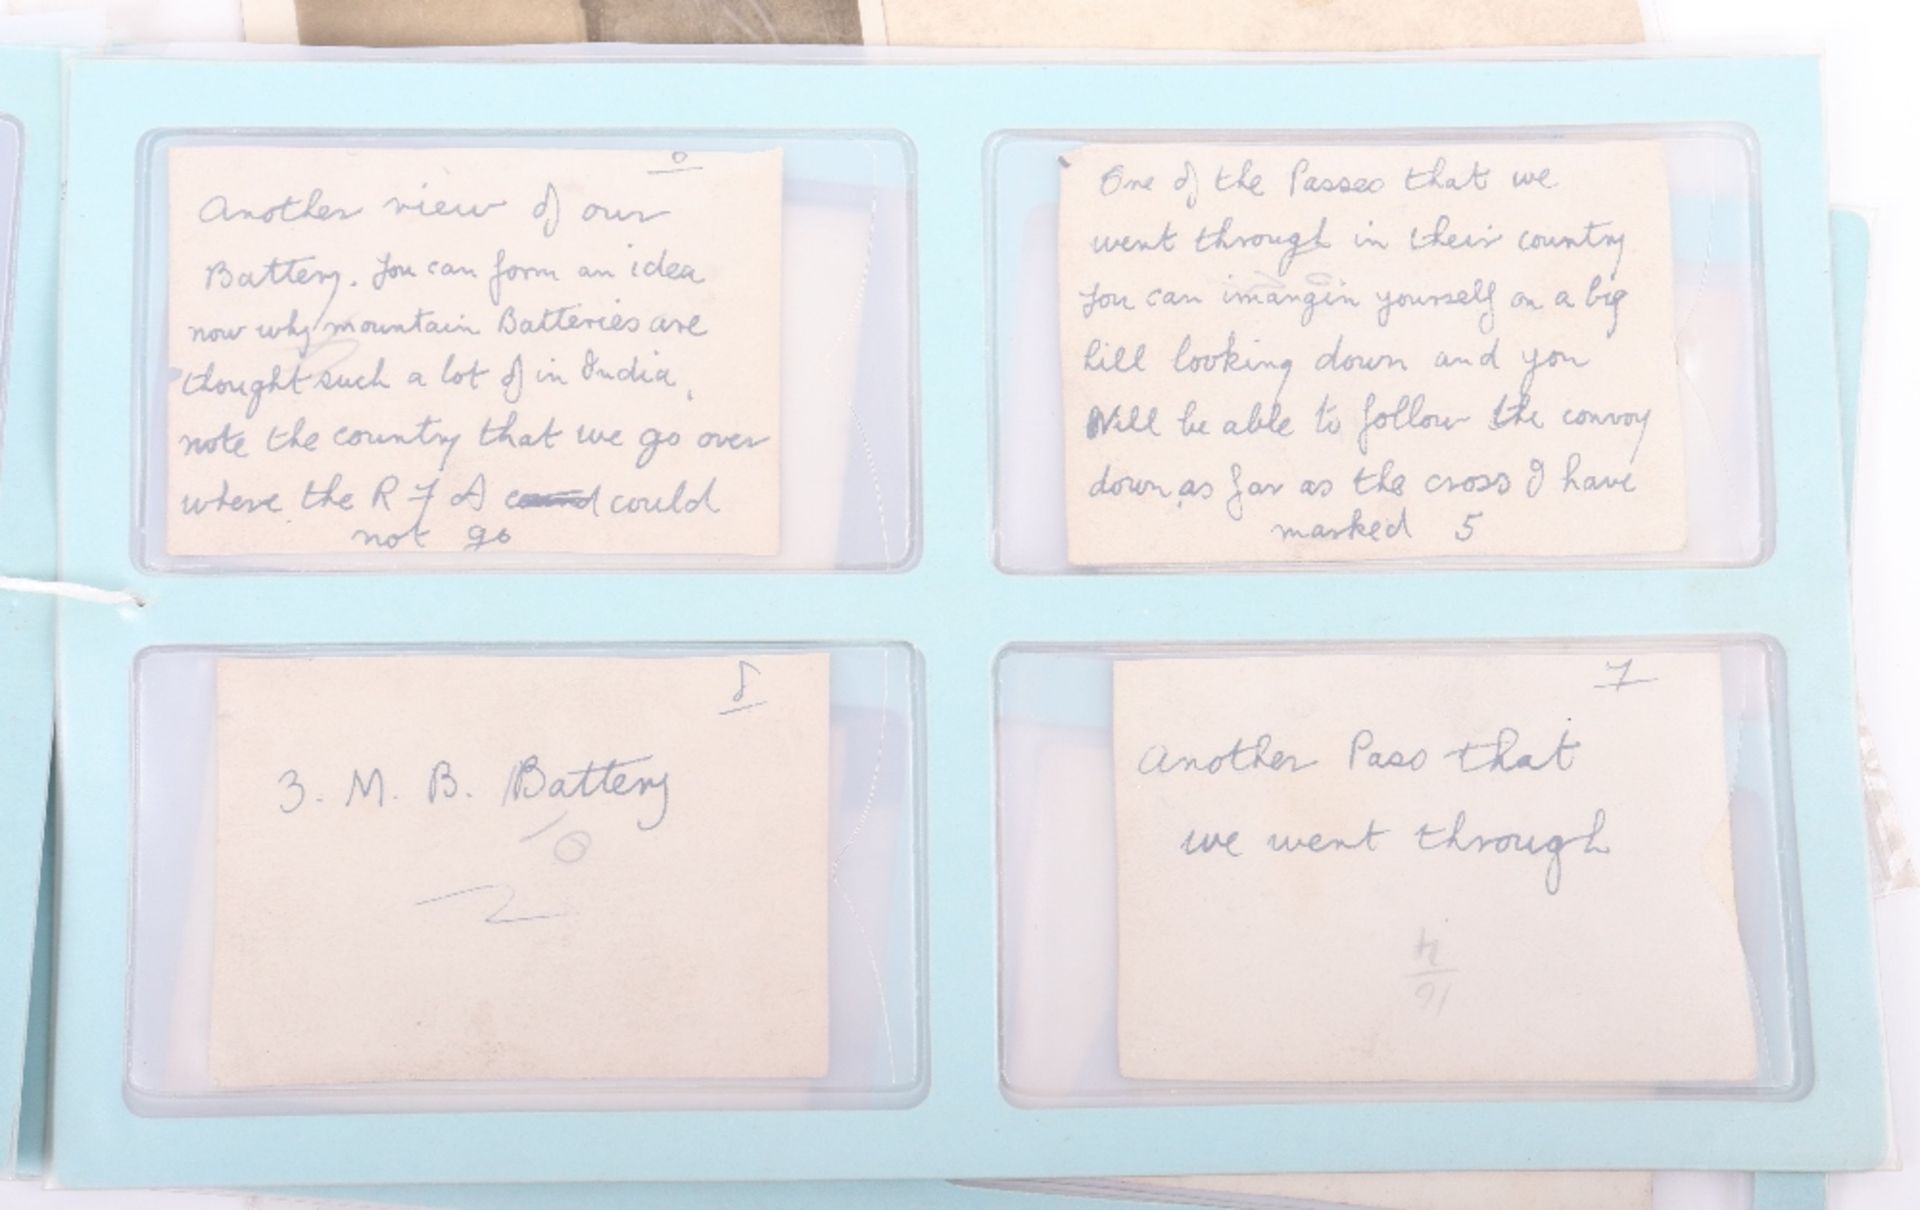 Another view of our
Battery. You can form an idea
now why mountain Batteries are
thought such a lot of in India,
note the country that we go over
where the R F A could
not go
One of the Passes that we
went through in their country
You can imangin yourself on a big
hill looking down and you
Will be able to follow the convoy
down as far as the cross I have
marked 5
8
3. M. B. Battery
7
Another Pass that
we went through